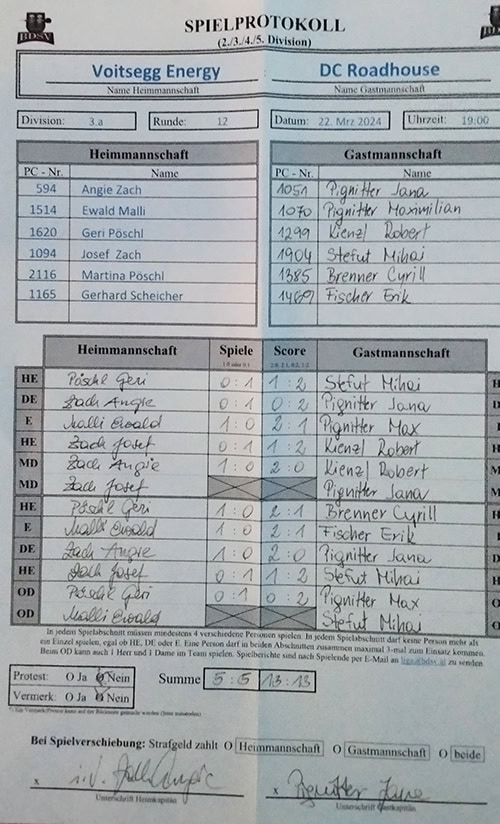 BDSV
SPIELPROTOKOLL
(2./3./4./5. Division)
Voitsegg Energy : DC Roadhouse
Name Heimmannschaft Name Gastmannschaft
Division: 3.a Runde: 12 Datum: 22. Mrz 2024 Uhrzeit: 19:00
Heimmannschaft Gastmannschaft
PC - Nr. Name PC - Nr. Name
594 Angie Zach 1051 Pignitter Jana
1514 Ewald Malli 1070 Pignitter Maximilian
1620 Geri Pöschl 1299 Kienzl Robert
1094 Josef Zach 1904 Stefut Mihai
2116 Martina Pöschl 1385 Brenner Cyrill
1165 Gerhard Scheicher Fischer Erik
Heimmannschaft Spiele Score Gastmannschaft
HE Pöschl Geri 0:1 1:2 Stefut Mihai H
DE Zach Angie 0:1 0:2 Pignitter Jana D
E Malli Ewald 1:0 2:1 Pignitter Max
HE Zach Josef 0:1 1:2 Kienzl Robert H
MD Zach Angie 1:0 2:0 Kienzl Robert M
MD Zach Josef Pignitter Jana M
HE Pöschl Geri 1:0 2:1 Brenner Cyrill H
E Malli Ewald 1:0 2:1 Fischer Erik
DE Zach Angie 1:0 2:0 Pignitter Jana D
HE Zach Josef 0:1 1:2 Stefut Mihai H
OD Pöschl Geri 0:1 0:2 Pignitter Max O
OD Malli Ewald Stefut Mihai O
In jedem Spielabschnitt müssen mindestens 4 verschiedene Personen spielen. In jedem Spielabschnitt darf keine Person mehr als
ein Einzel spielen, egal ob HE, DE oder E. Eine Person darf in beiden Abschnitten zusammen maximal 3-mal zum Einsatz kommen.
Beim OD kann auch 1 Herr und 1 Dame im Team spielen. Spielberichte sind nach Spielende per E-Mail an liga@bdsv.at zu senden
Protest: O Ja O Nein Summe 5:5 13:13
Vermerk: O Ja O Nein
Bei Spielverschiebung: Strafgeld zahlt O Heimmannschaft O Gastmannschaft O beide
x i.V. x Pignitter Jana
Unterschrift Heimkapitän Unterschrift Gastkapitän